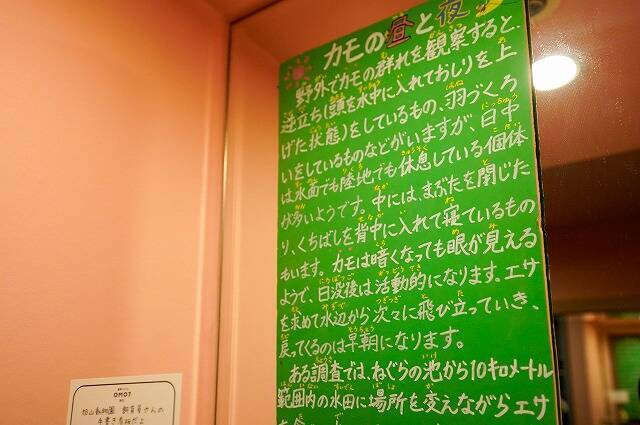 カモの昼と夜
野外でカモの群れを観察すると、
逆立ち(頭を水中に入れておしりを上
げた状態)をしているもの、羽づくろ
いをしているものなどがいますが、日中
は水面でも陸地でも休息している個体
が多いようです。中には、まぶたを閉じた
り、くちばしを背中に入れて寝ているもの
もいます。カモは暗くなっても眼が見える
ようで、日没後は活動的になります。エサ
を求めて水辺から次々に飛び立っていき、
戻ってくるのは早朝になります。
ある調査では、ねぐらの池から10キロメートル
範囲内の水田に場所を変えながらエサ
OMO7
旭山動物園 飼育員さんの
手書き看板だよ